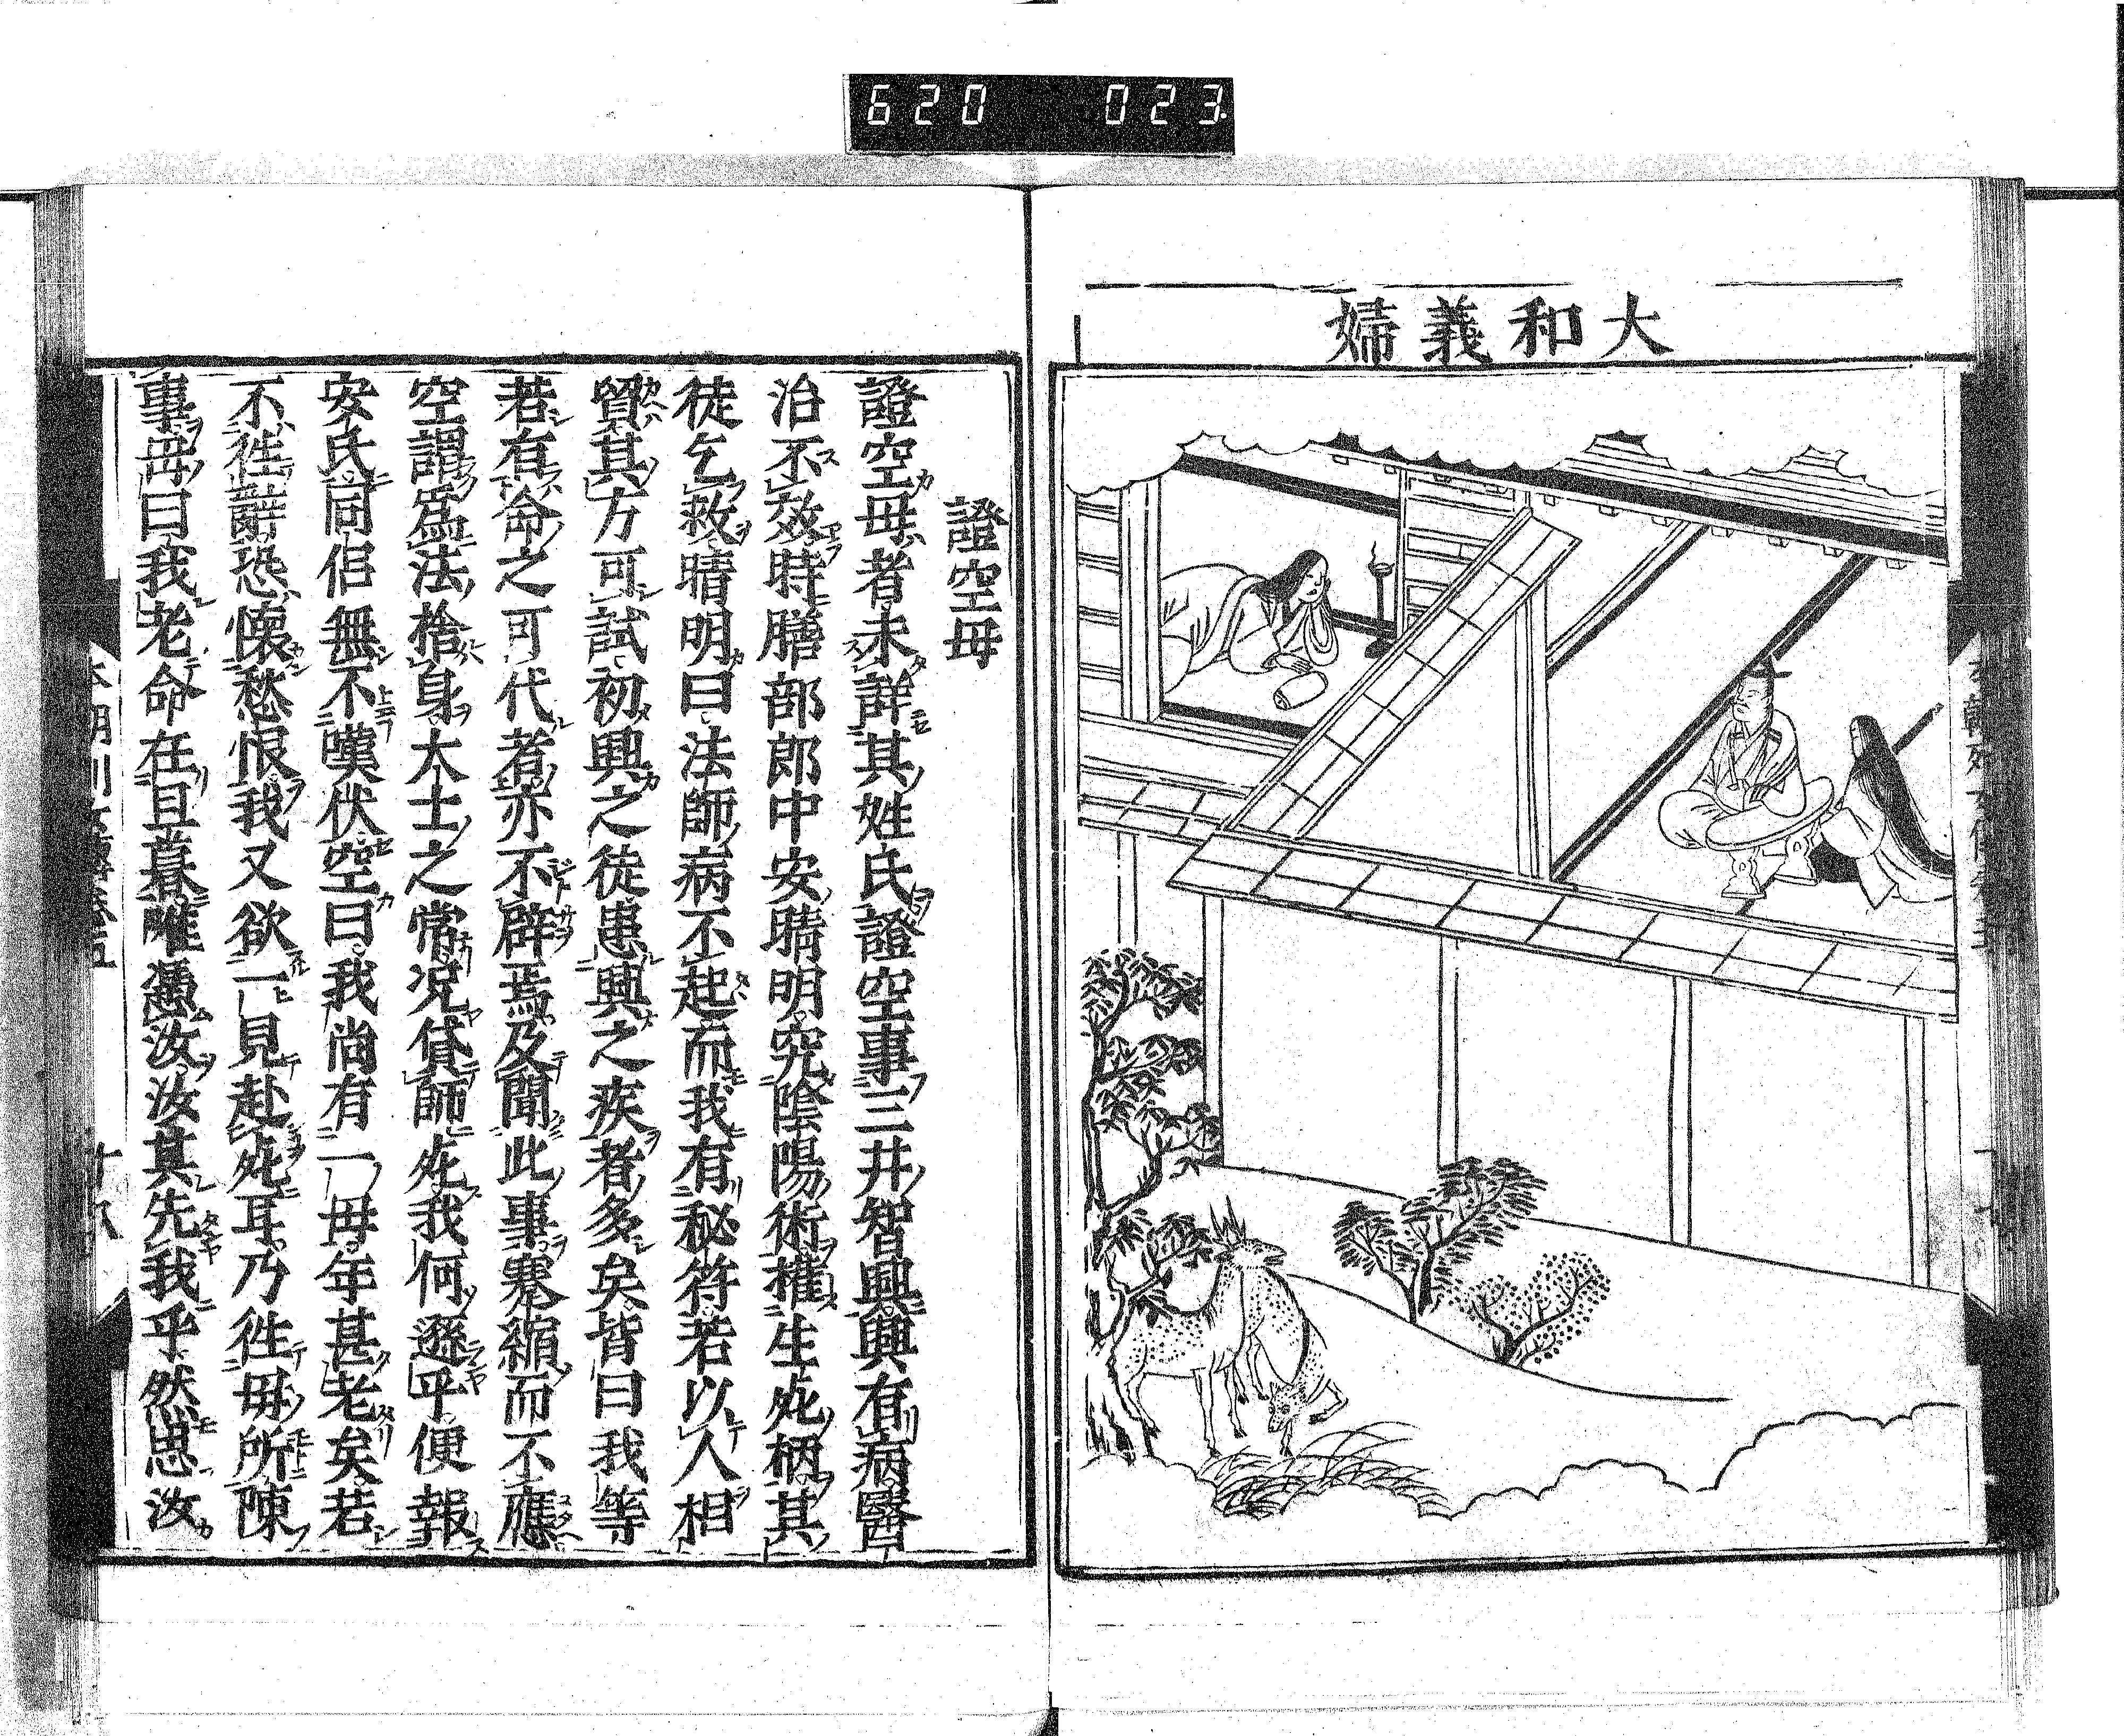 620 023
大和義婦
證空母
證空母者未詳其姓氏證空事三井智興興有病醫
治不效時膳部郎中安晴明究陰陽術權生死柄其
徒乞救晴明曰法師病不起而我有秘符若以人相
貿其方可試初興之徒患興之疾者多矣皆曰我等
若有命之可代者亦不辟焉及聞此事蹇縮而不應
空謂爲法捨身大士之常況貸師死我何遜乎便報
安氏同侶無不嘆伏空曰我尚有一母年甚老矣若
不徃辭恐懷愁恨我又欲一見赴死耳乃徃母所陳
事母曰我老命在旦暮唯憑汝汝其先我乎然思汝